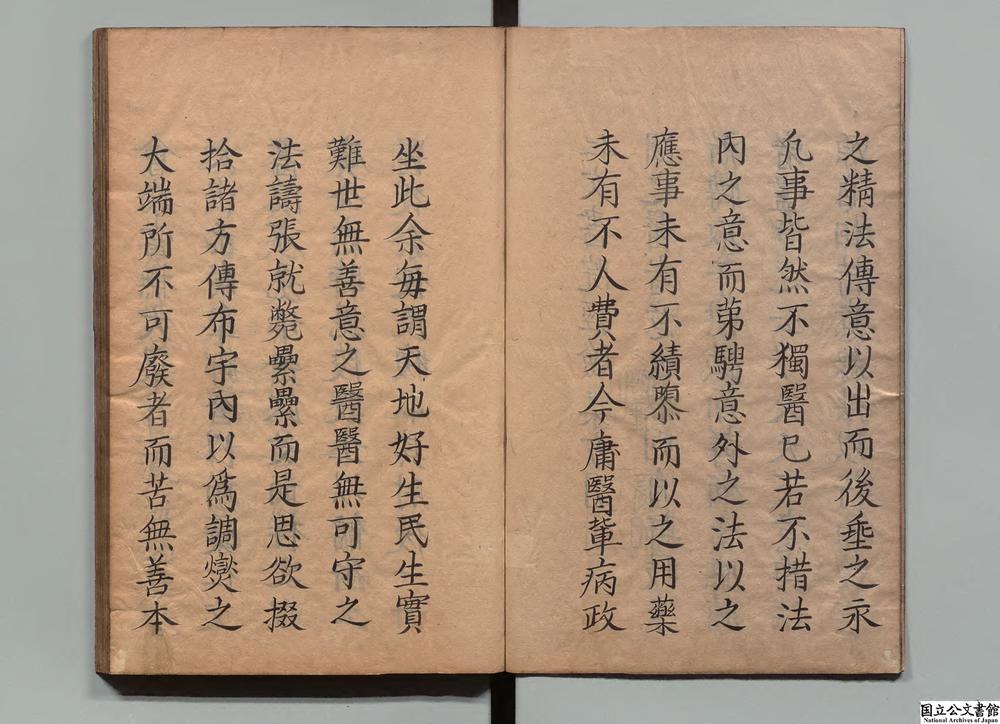 之精法傳意以出而後垂之永
凢事皆然不獨醫已若不措法
內之意而苐騁意外之法以之
應事未有不績隳而以之用藥
未有不人費者今庸醫輩病政
坐此余每謂天地好生民生實
難世無善意之醫醫無可守之
法譸張就斃纍纍而是思欲掇
拾諸方傳布宇內以爲調爕之
大端所不可廢者而苦無善本
国立公文書館
National Archives of Japan